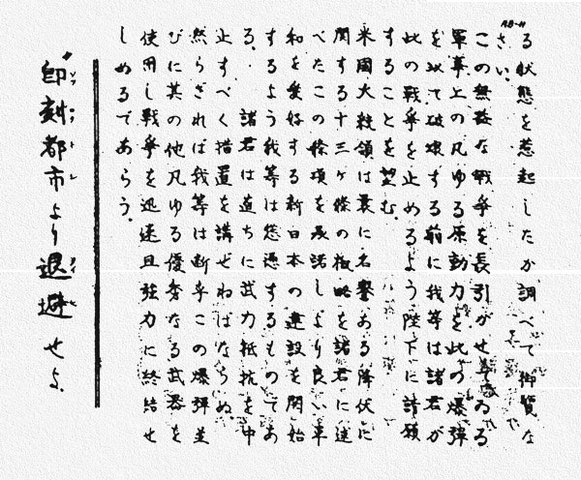 AB-11
る状態を惹起したか調べて御覧な
さい。
この無益な戦争を長引がせてゐる
軍事上の凡ゆる原動力を此の爆弾
を以て破壊する前に我等は諸君が
此の戦争を止めるよう陛下に請願
することを望む。
米國大統領は曩に名誉ある降伏に
関する十三ヶ條の概略を諸君に述
べたこの條項を承諾しより良い平
和を愛好する新日本の建設を開始
するよう我等は慫慂するものであ
る。諸君は直ちに武力抵抗を中
止すべく措置を講ぜねばならぬ。
然らざれば我等は断乎この爆弾並
びに其の他凡ゆる優秀なる武器を
使用し戦争を迅速且強力に終結せ
しめるであらう。
"即刻都市より退避せよ
ソッコクトシ タイヒ